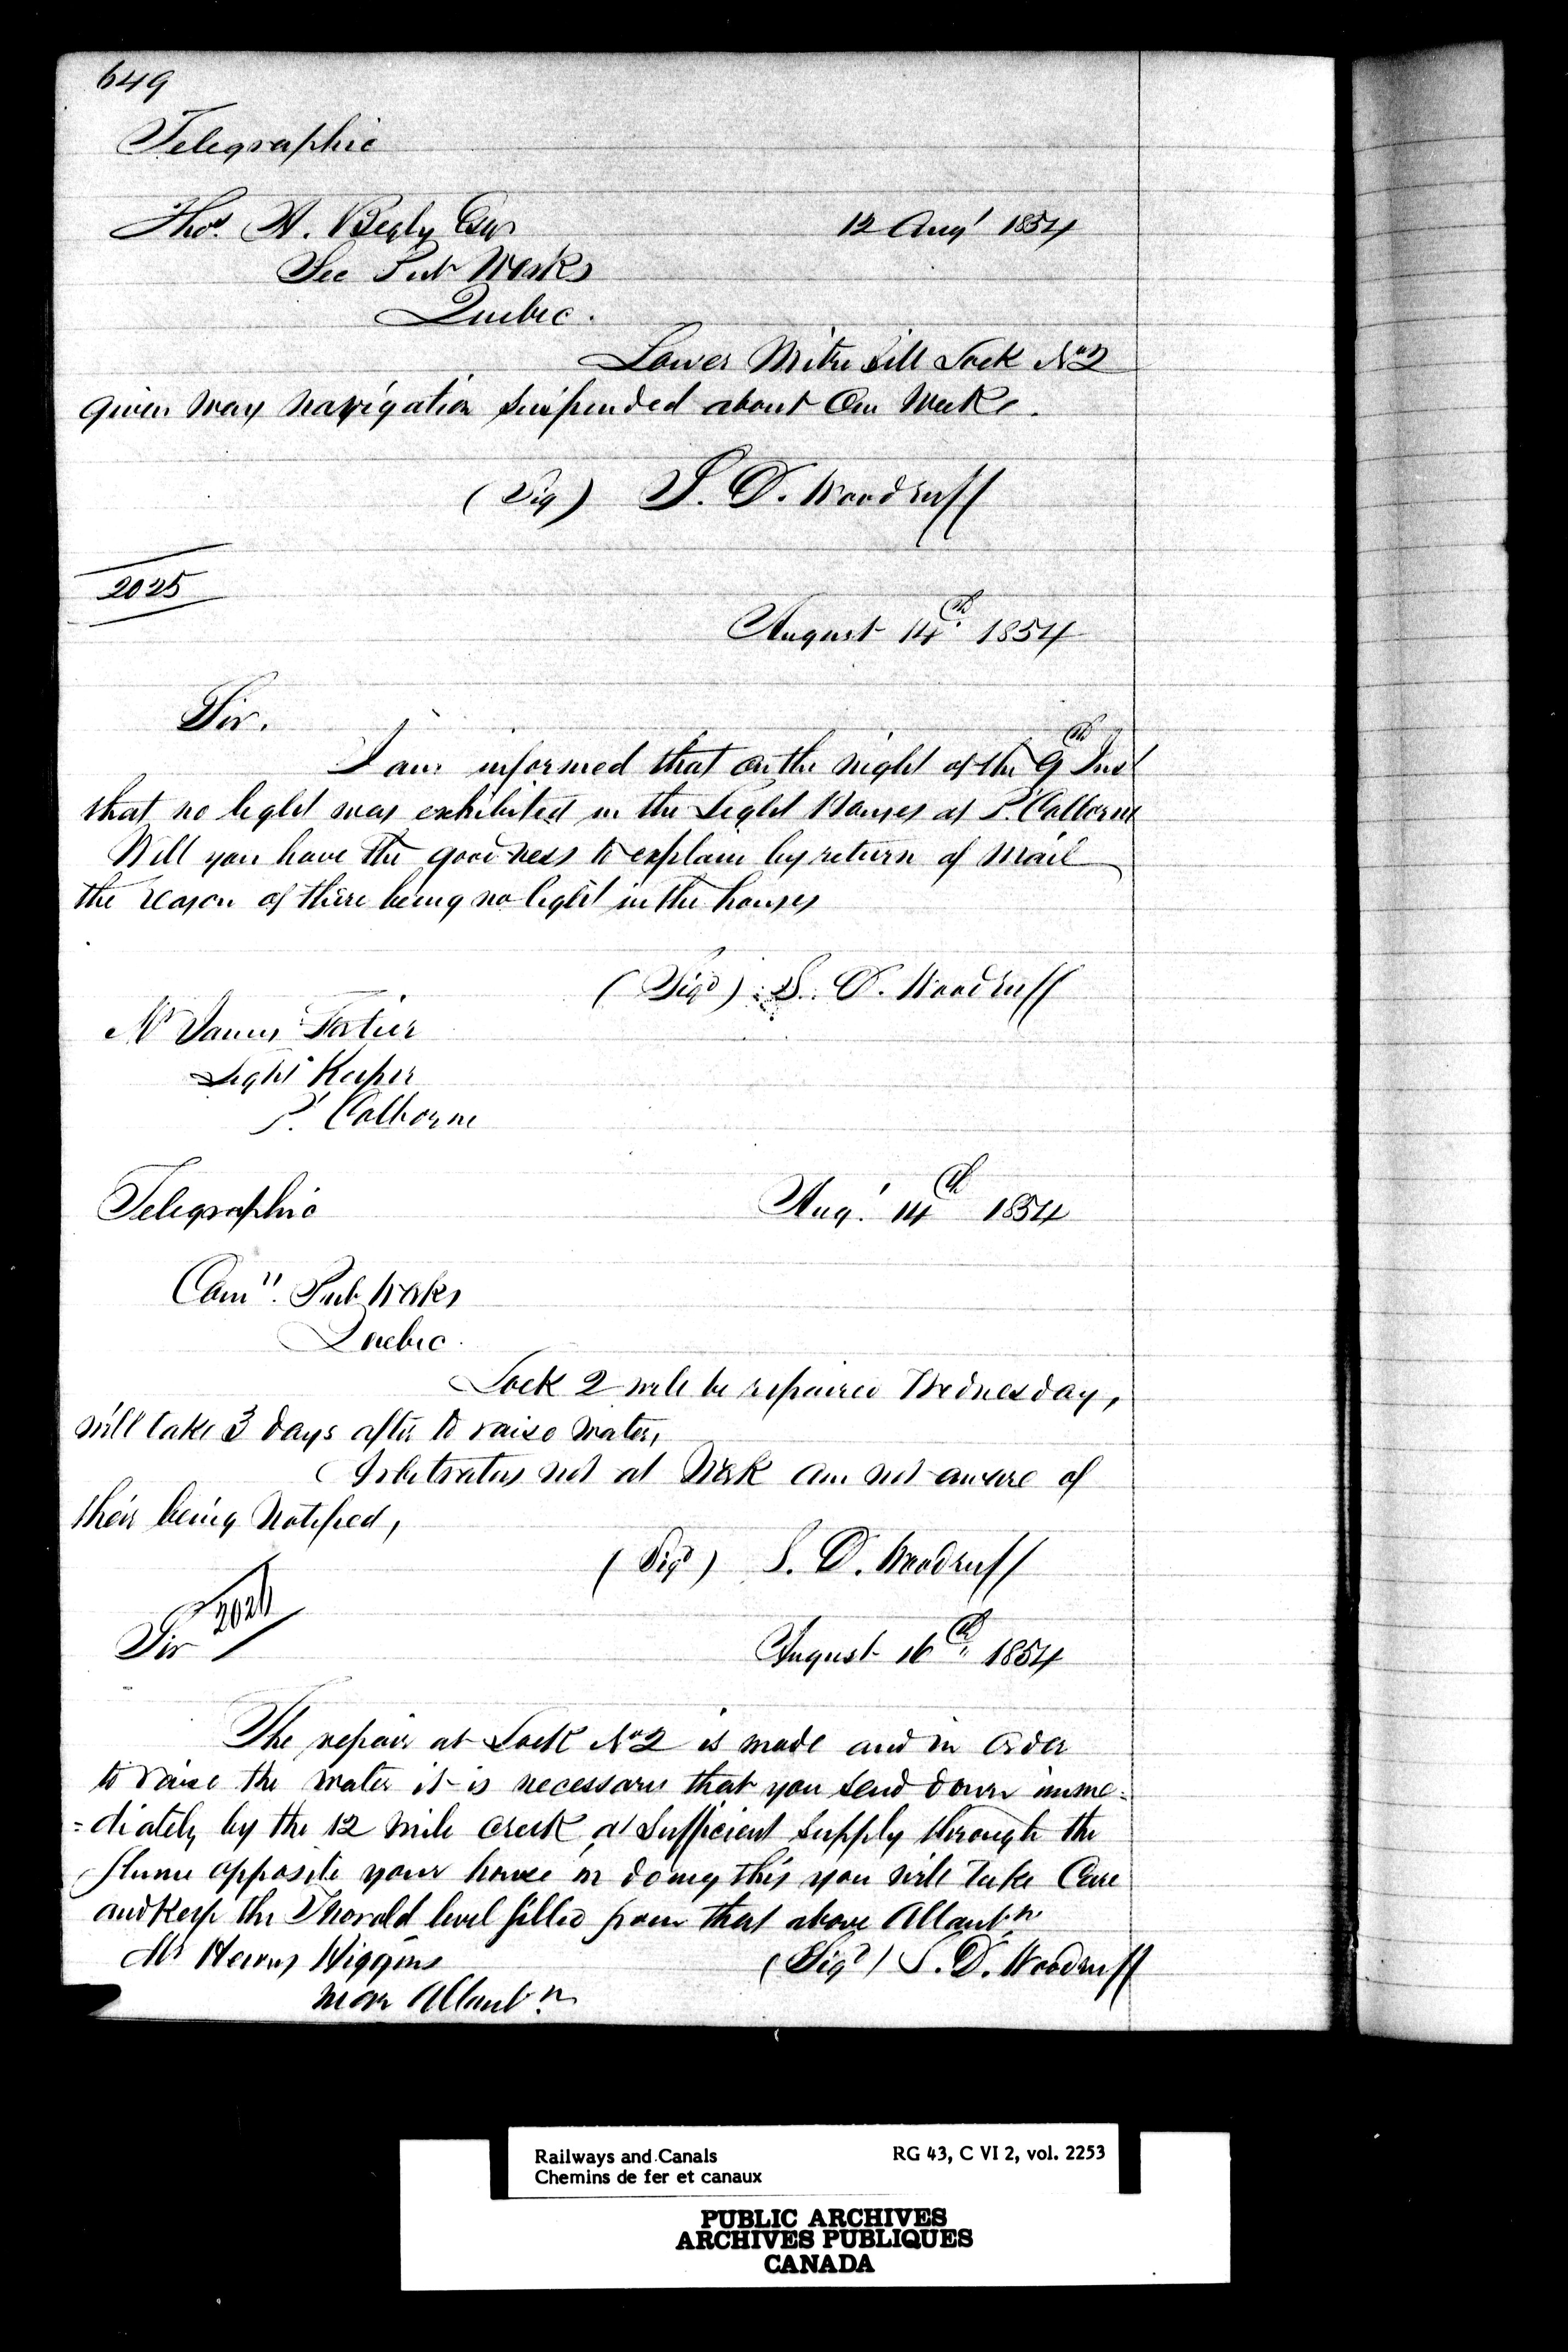 649
Telegraphic
Thos. A. Begly Esqr 12 Augt 1854
Sec Pub Works
Quebec.
Lower Mitre Sill Lock No 2
given way navigation suspended about One Week.
(Sig) S. D. Woodruff
2025
August 14th 1854
Sir.
I am informed that on the night of the 9th Inst
that no light was exhibited in the Light Houses at Pt. Colborne
Will you have the goodness to explain by return of Mail
the reason of there being no light in the houses
(Sigd) S. D. Woodruff
Mr James Fortier
Light Keeper
Pt. Colborne
Telegraphic Augt. 14th 1854
Comrs. Pub Works
Quebec.
Lock 2 will be repaired Wednesday,
will take 3 days after to raise water,
Arbitrators not at Work am not aware of
their being Notified,
(Sigd) S. D. Woodruff
2026
Sir August 16th 1854
The repair at Lock No 2 is made and in order
to raise the water it is necessary that you send down imme-
=diately by the 12 mile creek a sufficient supply through the
flume opposite your house in doing this you will take Care
and keep the Thorold level filled from that above Allanbn
Mr Henry Wiggins (Sigd) S. D. Woodruff
near Allanbn.
Railways and Canals RG 43, C VI 2, vol. 2253
Chemins de fer et canaux
PUBLIC ARCHIVES
ARCHIVES PUBLIQUES
CANADA